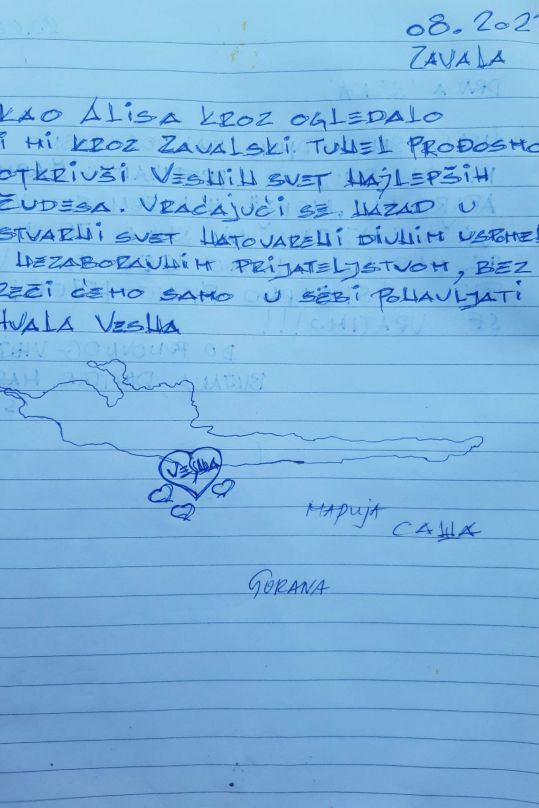 08. 202
ZAVALA
KAO ALISA KROZ OGLEDALO
I MI KROZ ZAVALSKI TUNEL PROĐOSMO
OTKRIVŠI VESNIN SVET NAJLEPŠIH
ČUDESA. VRAĆAJUĆI SE NAZAD U
STVARNI SVET NATOVARENI DIVNIM USPOME
NEZABORAVNIM PRIJATELJSTVOM, BEZ
REČI ĆEMO SAMO U SEBI PONAVLJATI
HVALA VESNA
VESNA
Марија
САША
GORANA